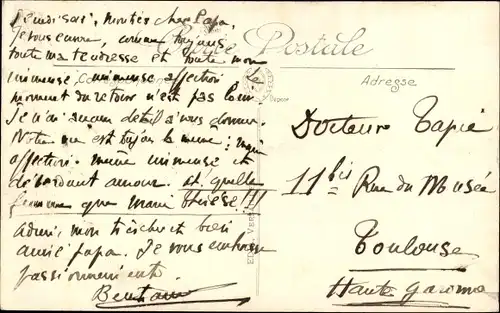 mon très cher Papa,
Je vous envoie, comme toujours
toute ma tendresse et toute mon
immense immense affection. Le
moment du retour n'est pas loin.
Je n'ai aucun détail à vous donner.
Notre vie est toujours la même:
affection même immense et
débordant amour. et quelle
femme que Marie Thérèse!!!
Adieu, mon très cher et bien
aimé papa. Je vous embrasse
passionnément.
Carte Postale
Adresse
Docteur Tapié
11 bis Rue du Musée
Toulouse
Haute Garonne